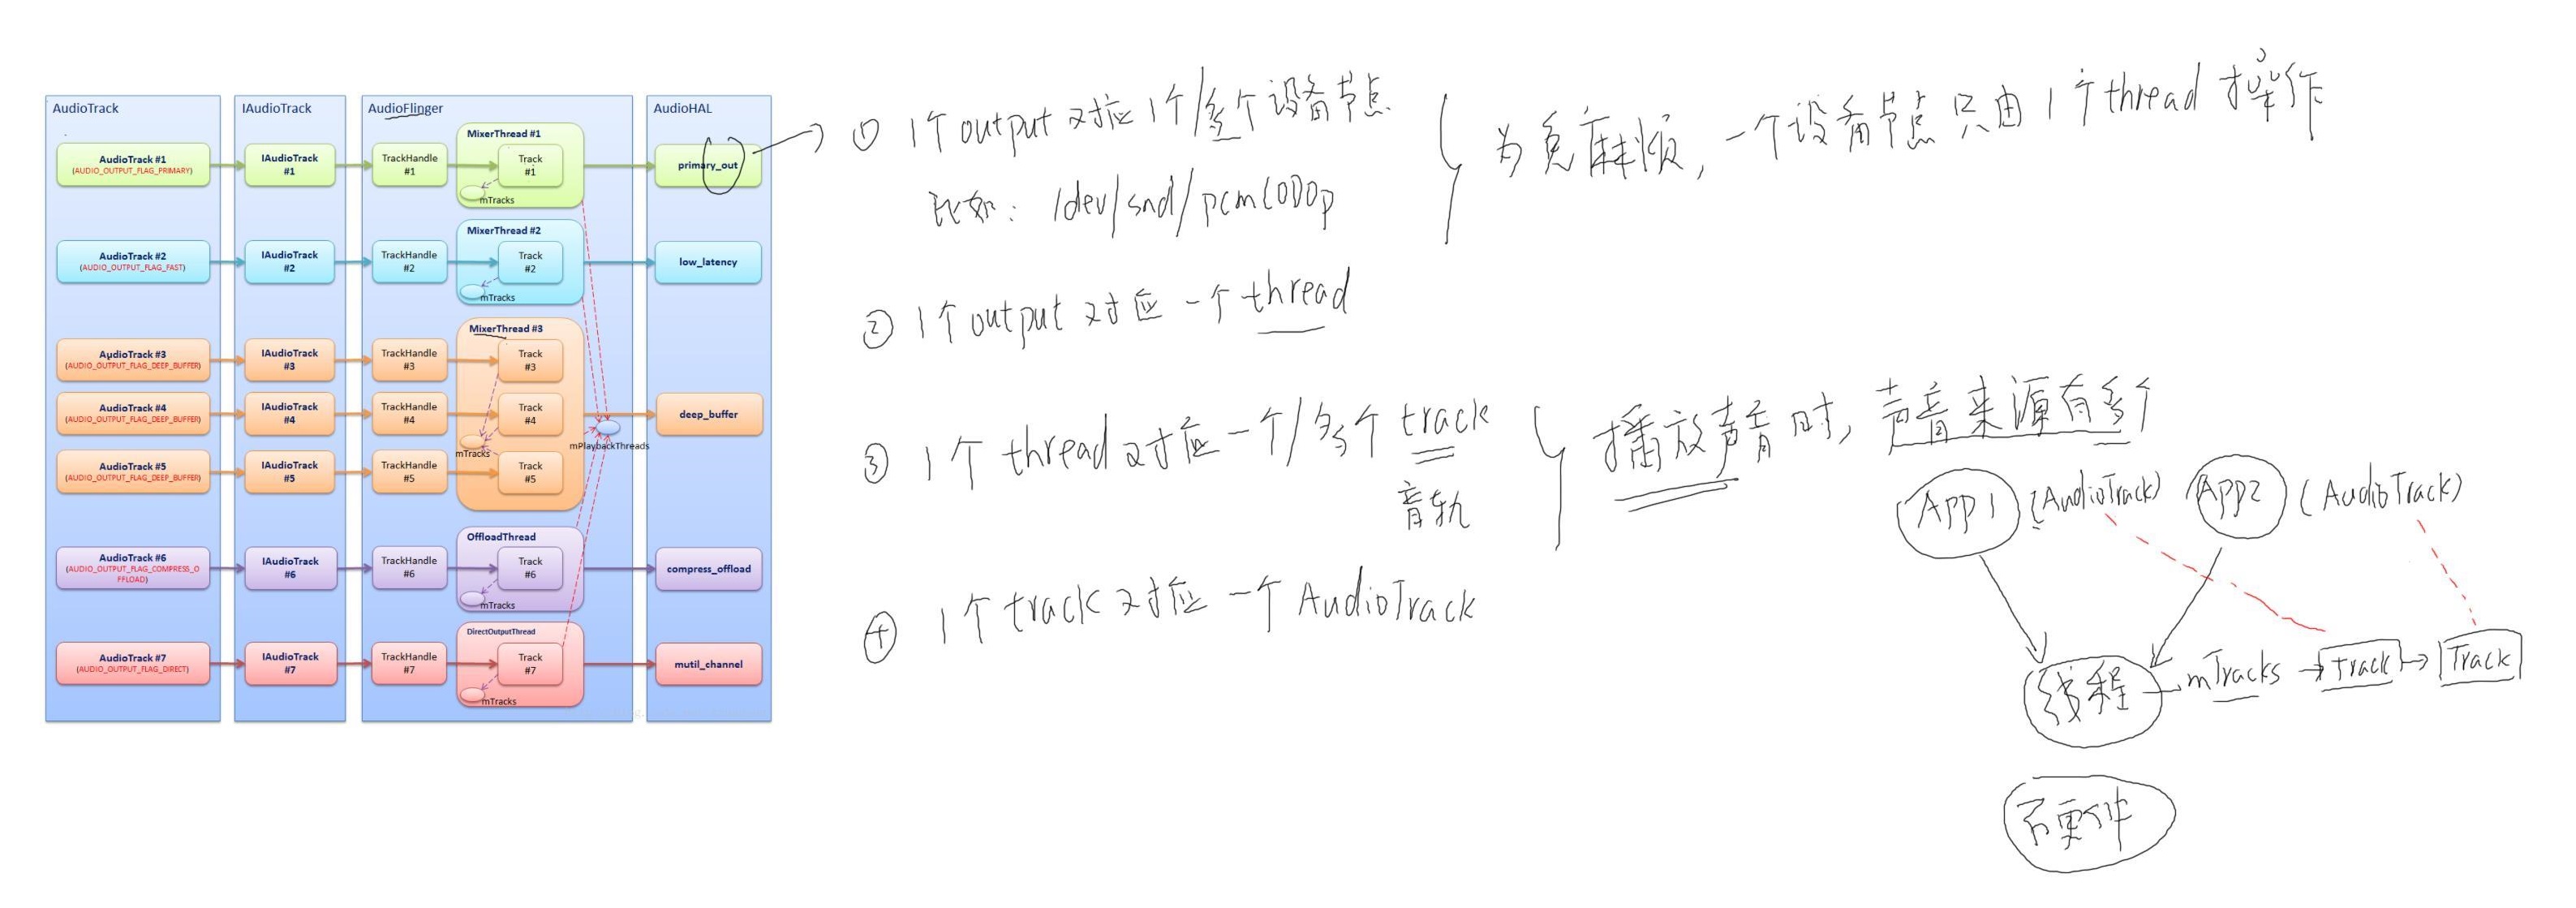 AudioTrack
IAudioTrack
AudioFlinger
AudioHAL
AudioTrack #1
(AUDIO_OUTPUT_FLAG_PRIMARY)
IAudioTrack
#1
TrackHandle
#1
MixerThread #1
Track
#1
mTracks
primary_out
AudioTrack #2
(AUDIO_OUTPUT_FLAG_FAST)
IAudioTrack
#2
TrackHandle
#2
MixerThread #2
Track
#2
mTracks
low_latency
AudioTrack #3
(AUDIO_OUTPUT_FLAG_DEEP_BUFFER)
IAudioTrack
#3
TrackHandle
#3
MixerThread #3
Track
#3
AudioTrack #4
(AUDIO_OUTPUT_FLAG_DEEP_BUFFER)
IAudioTrack
#4
TrackHandle
#4
Track
#4
mTracks
mPlaybackThreads
deep_buffer
AudioTrack #5
(AUDIO_OUTPUT_FLAG_DEEP_BUFFER)
IAudioTrack
#5
TrackHandle
#5
Track
#5
AudioTrack #6
(AUDIO_OUTPUT_FLAG_COMPRESS_O
FFLOAD)
IAudioTrack
#6
TrackHandle
#6
OffloadThread
Track
#6
mTracks
compress_offload
AudioTrack #7
(AUDIO_OUTPUT_FLAG_DIRECT)
IAudioTrack
#7
TrackHandle
#7
DirectOutputThread
Track
#7
mTracks
mutil_channel
① 1个output对应1个/多个设备节点
比如: /dev/snd/pcmC0D0p
为免麻烦, 一个设备节点只由1个thread操作
② 1个output对应一个thread
③ 1个thread对应一个/多个track
音轨
播放声音时, 声音来源有多个
④ 1个track对应一个AudioTrack
App1 (AudioTrack)
App2 (AudioTrack)
线程
mTracks
track
Track
硬件